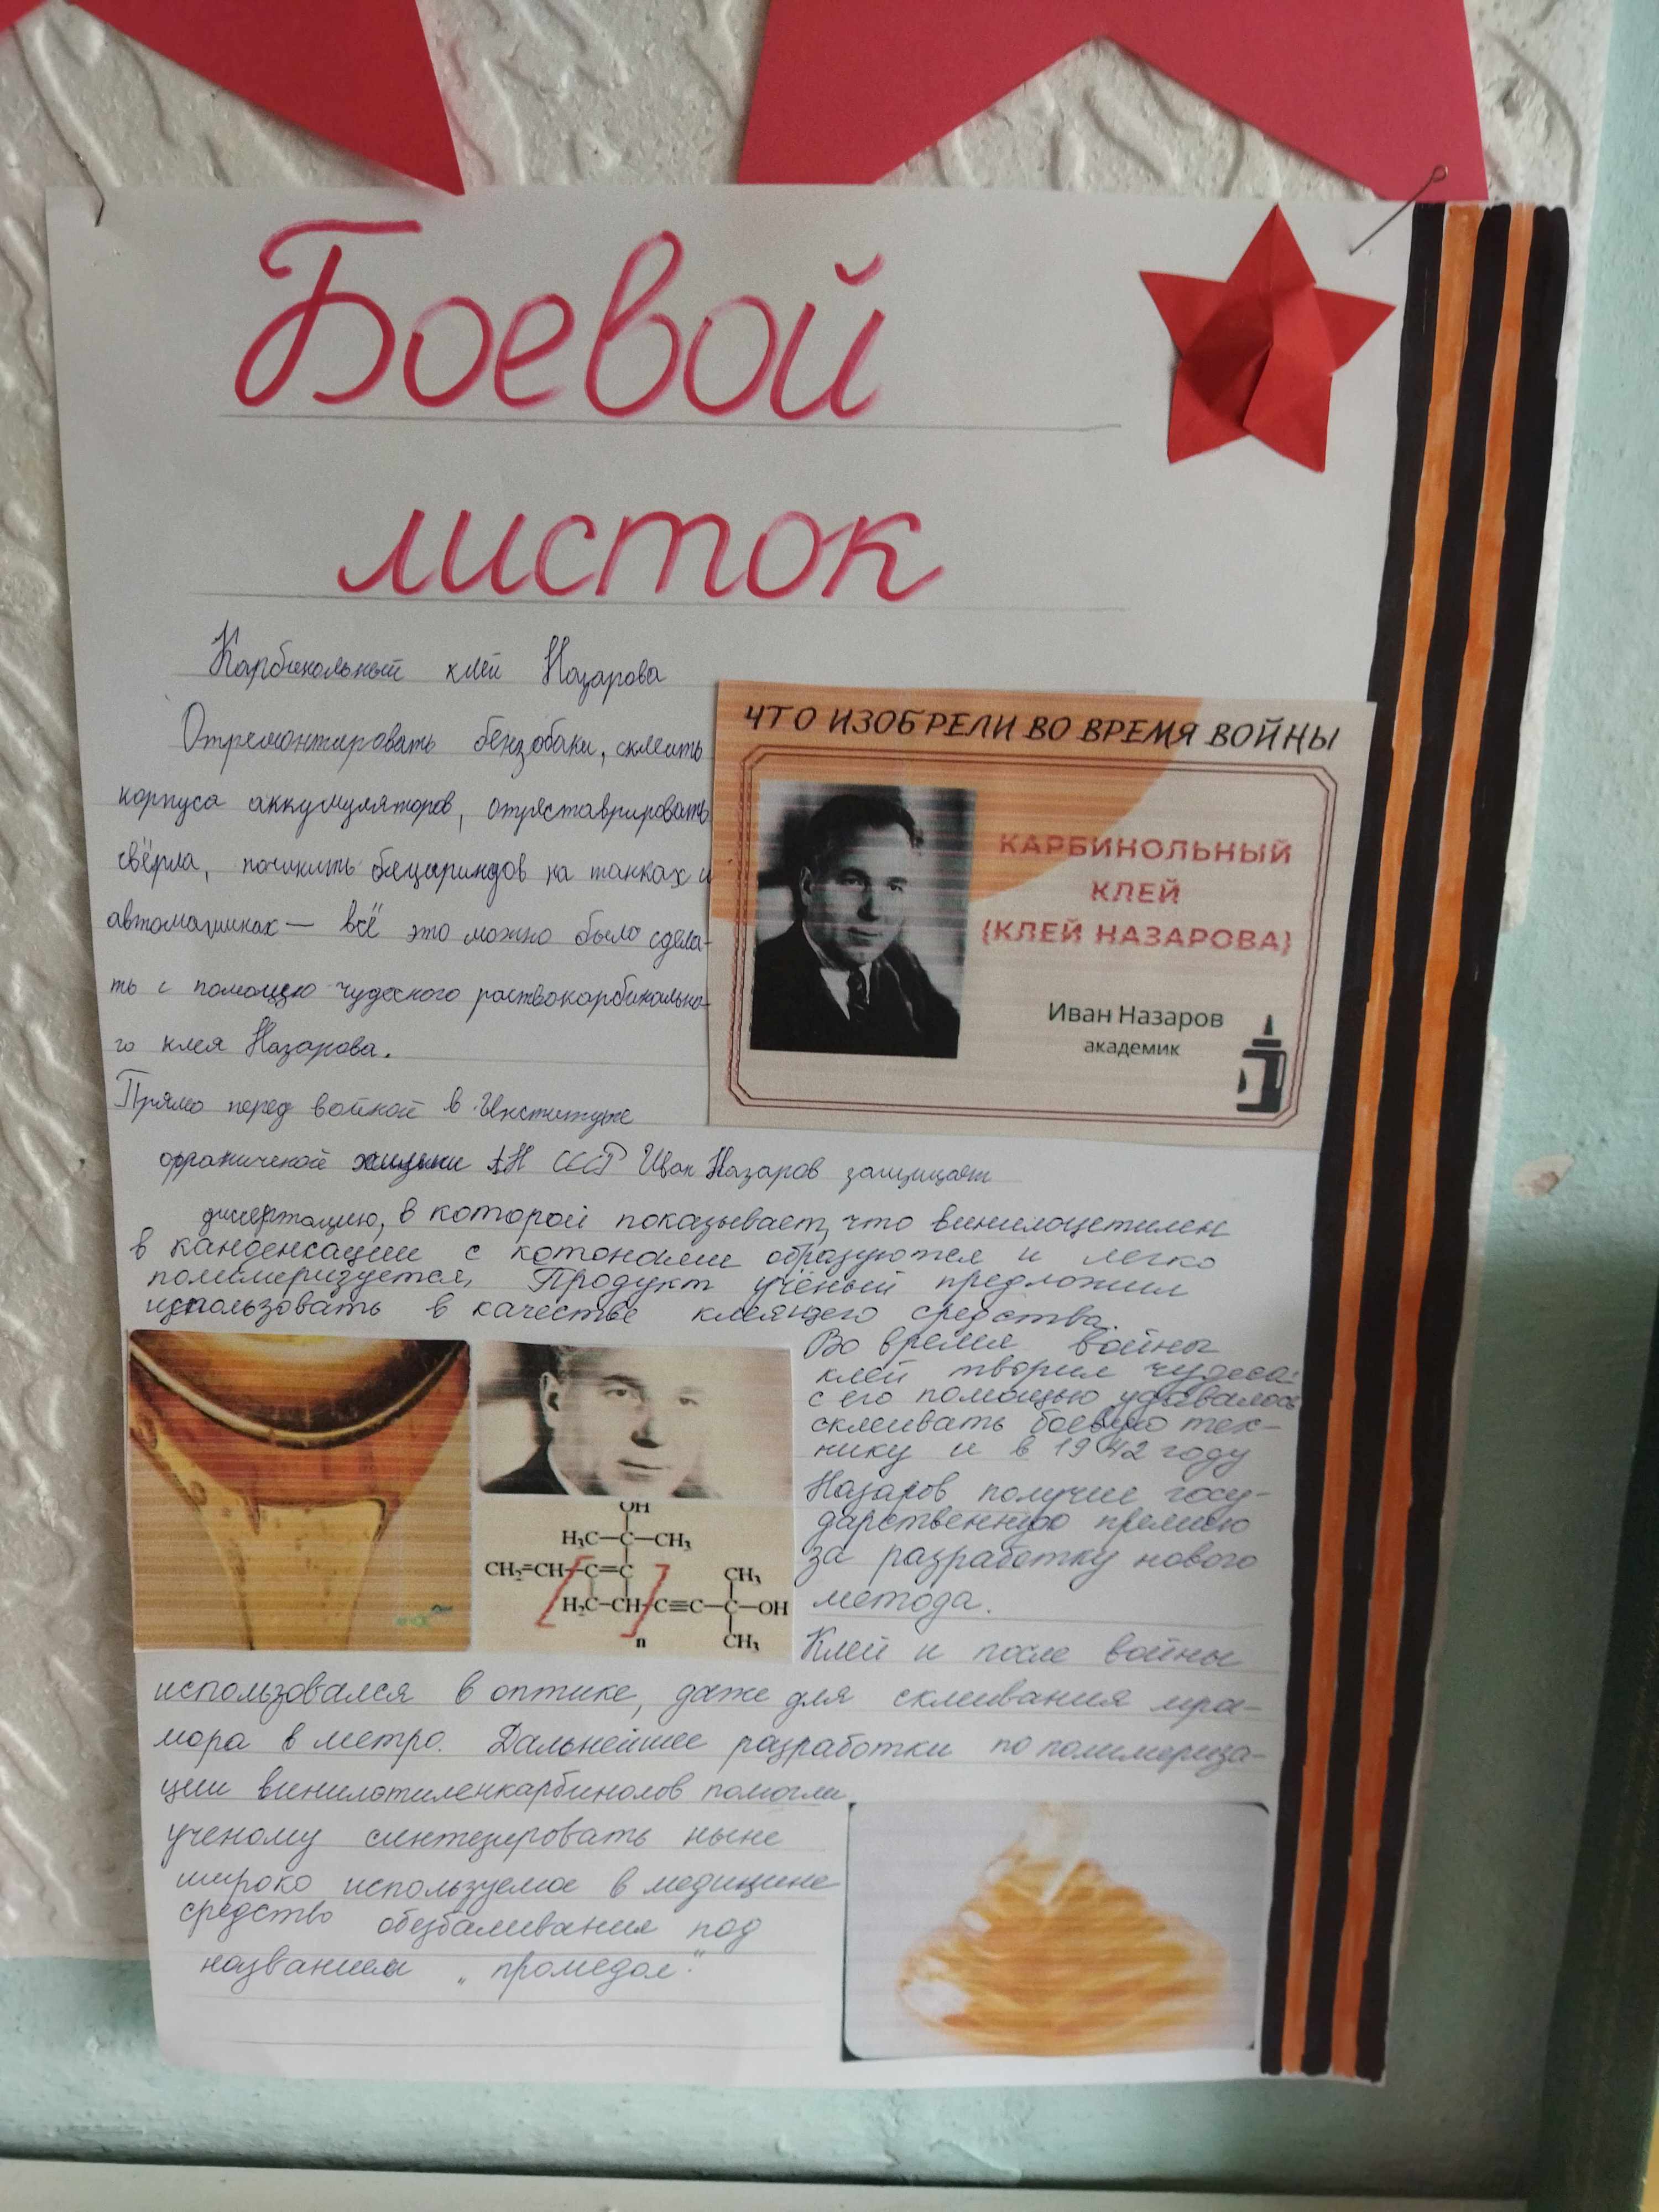 Боевой
листок
Карбинольный клей Назарова
Отремонтировать бензобаки, склеить
корпуса аккумуляторов, отреставрировать
свёрла, починить на танках и
автомашинах — всё это можно было сдела-
ть с помощью чудесного
го клея Назарова.
Прямо перед войной в Институте
химии АН СССР Иван Назаров защищает
диссертацию, в которой показывает, что винилацетилен
в канденсации с котонами образуются и легко
полимеризуется. Продукт учёный предложил
использовать в качестве клеящего средства.
ЧТО ИЗОБРЕЛИ ВО ВРЕМЯ ВОЙНЫ
КАРБИНОЛЬНЫЙ
КЛЕЙ
(КЛЕЙ НАЗАРОВА)
Иван Назаров
академик
Во время войны
клей творил чудеса:
с его помощью удавалось
склеивать боевую тех-
нику и в 1942 году
Назаров получил госу-
дарственную премию
за разработку нового
метода.
OH
H₃C—C—CH₃
CH₂=CH—C=C
H₂C—CH—C≡C—C—OH
CH₃
CH₃
n
Клей и после войны
использовался в оптике, даже для склеивания мра-
мора в метро. Дальнейшее разработки по полимериза-
ции винилэтиленкарбинолов помогли
ученому синтезировать ныне
широко используемое в медицине
средство обезбаливания под
названием „промедол".